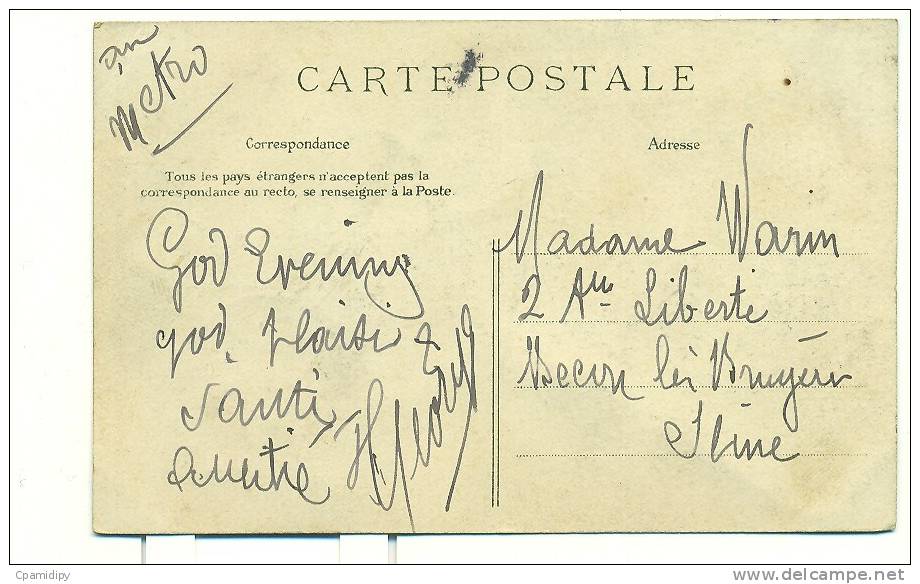 Metro
CARTE POSTALE
Correspondance
Adresse
Tous les pays étrangers n'acceptent pas la
correspondance au recto, se renseigner à la Poste.
God Evening
god. Plaisi &
Santé
amitié
Madame Warin
2 Liberté
Becon les Bruyères
Seine
Cpamidipy
www.delcampe.net